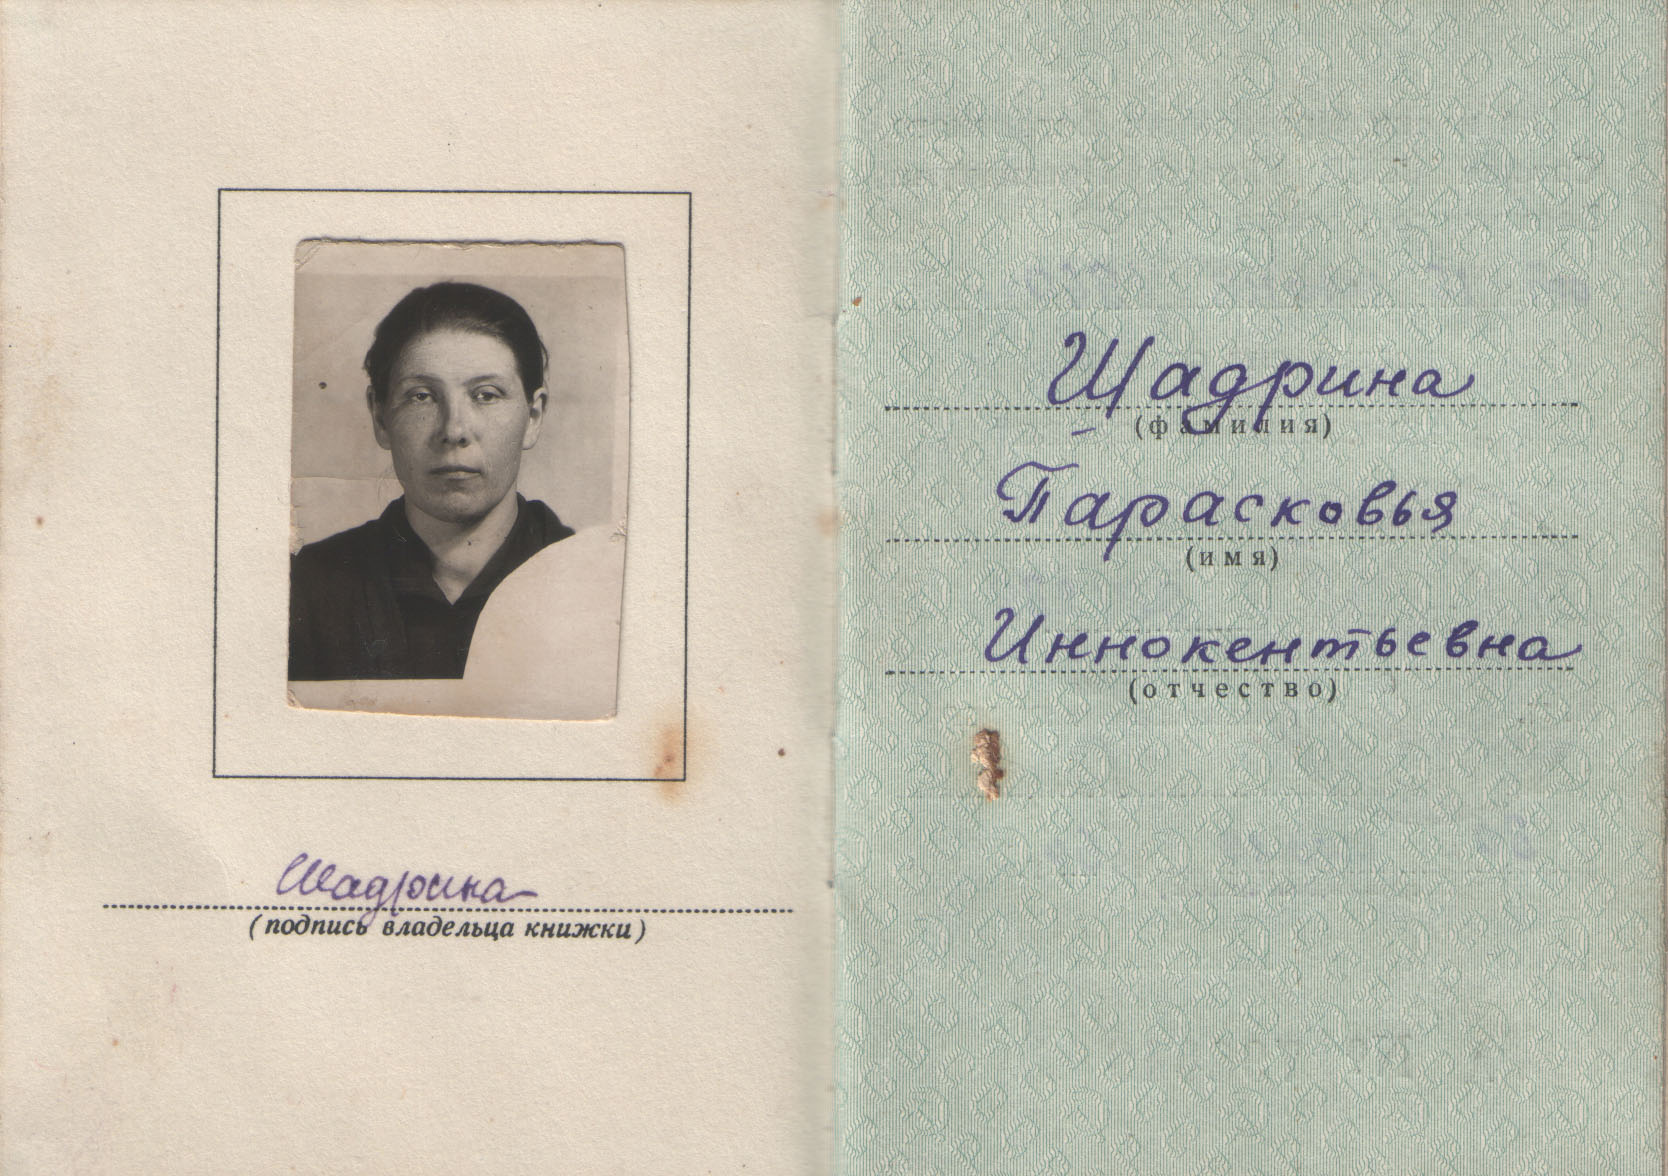 Шадрина
(подпись владельца книжки)
Шадрина
(фамилия)
Парасковья
(имя)
Иннокентьевна
(отчество)